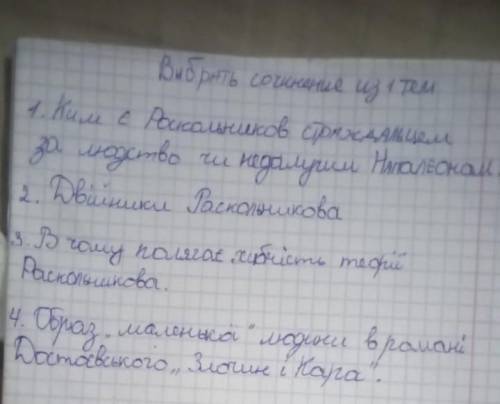 Вибрать сочинение из 1 тем
1. Ким є Роскольников страждальцем
за людство чи недолугим Наполеоном.
2. Двійники Раскольникова
3. В чому полягає хибність теорії
Раскольникова.
4. Образ „маленької" людини в романі
Достоєвського „Злочин і Кара".